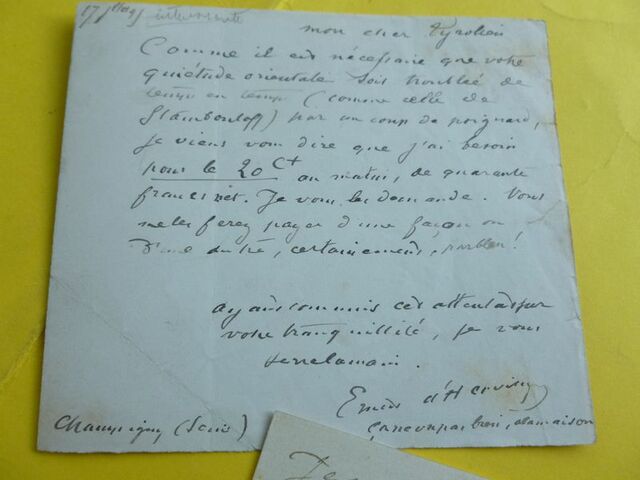 17
intéressante
mon cher Tyrolien
Comme il est nécessaire que votre
quiétude orientale soit troublée de
temps en temps (comme celle de
Stambouloff) par un coup de poignard,
je viens vous dire que j'ai besoin
pour le 20 Ct au matin, de quarante
francs net. Je vous les demande. Vous
me les ferez payer d'une façon ou
d'une autre, certainement, parbleu!
ayant commis cet attentat sur
votre tranquillité, je vous
serre la main.
Ernest d'Hervilly
Champigny (Seine)
ça ne va pas bien, à la maison
De